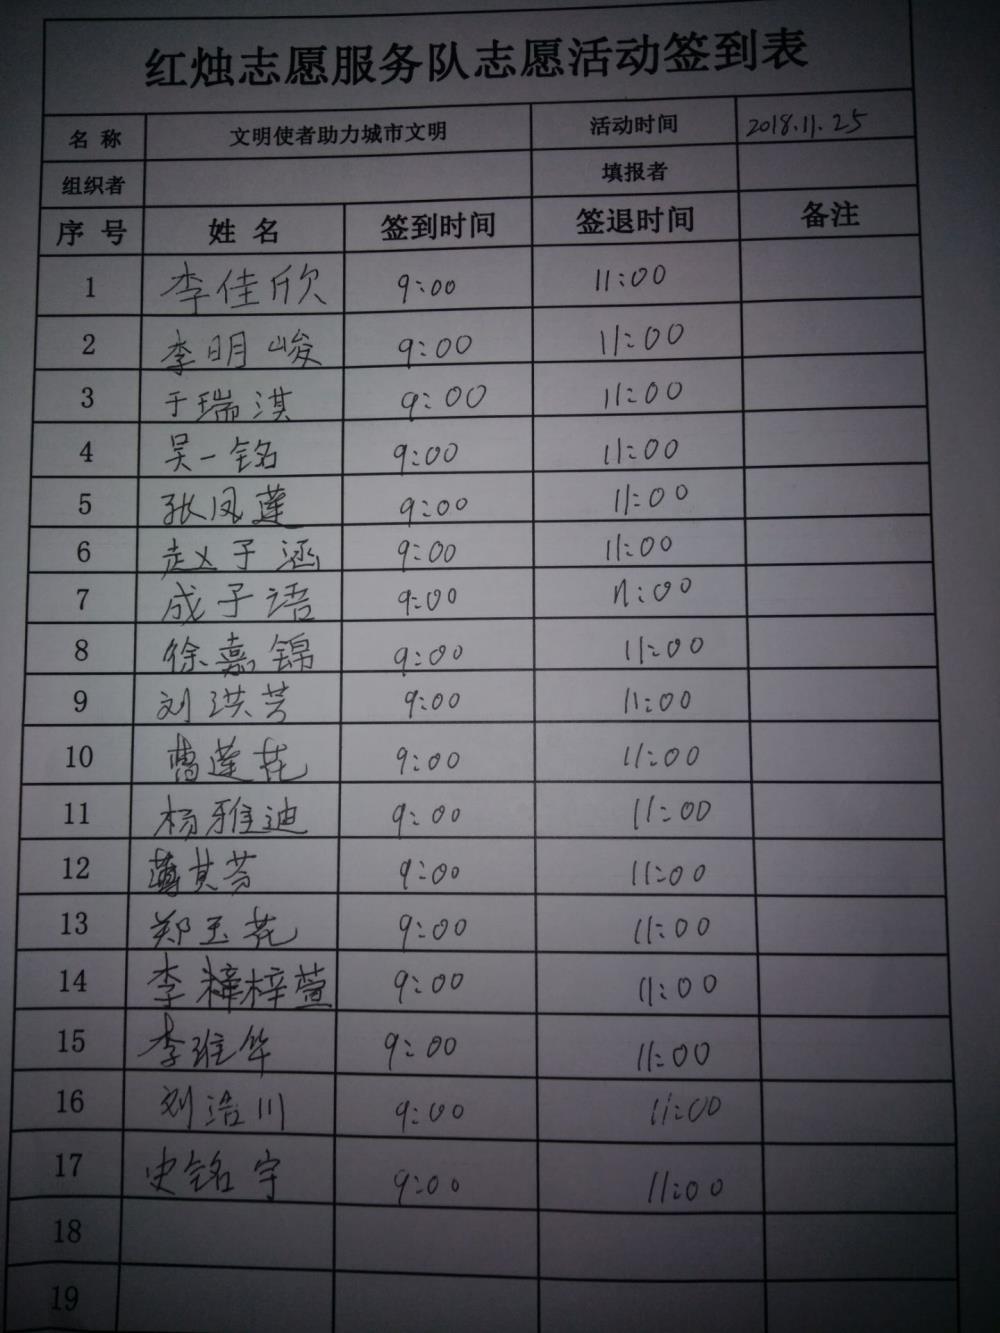 红烛志愿服务队志愿活动签到表
名 称 文明使者助力城市文明 活动时间 2018.11.25
组织者 填报者
序 号 姓 名 签到时间 签退时间 备注
1 李佳欣 9:00 11:00
2 李明峻 9:00 11:00
3 于瑞淇 9:00 11:00
4 吴一铭 9:00 11:00
5 张凤莲 9:00 11:00
6 赵子涵 9:00 11:00
7 成子语 9:00 11:00
8 徐嘉锦 9:00 11:00
9 刘洪芳 9:00 11:00
10 曹莲花 9:00 11:00
11 杨雅迪 9:00 11:00
12 其芬 9:00 11:00
13 郑玉花 9:00 11:00
14 李梓萱 9:00 11:00
15 李维华 9:00 11:00
16 刘浩川 9:00 11:00
17 史铭宇 9:00 11:00
18
19